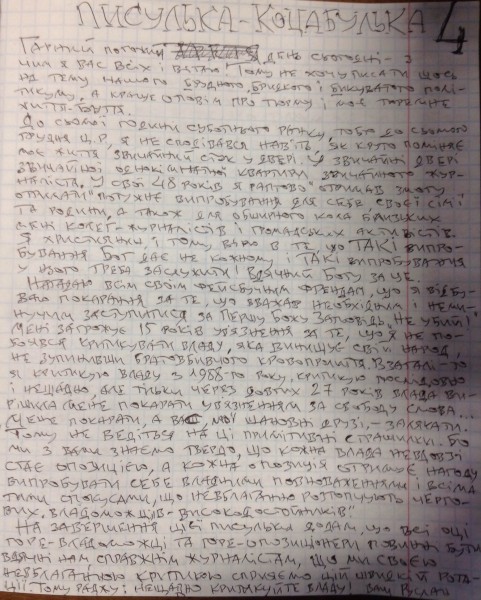 ПИСУЛЬКА-КОЦАБУЛЬКА 4
ГАРНИЙ ПОГОЖИЙ ДЕНЬ СЬОГОДНІ - З
ЧИМ Я ВАС ВСІХ І ВІТАЮ! ТОМУ НЕ ХОЧУ ПИСАТИ ЩОСЬ
НА ТЕМУ НАШОГО БРУДНОГО, БРИДКОГО І БИКУВАТОГО ПОЛІ-
ТИКУМУ, А КРАЩЕ ОПОВІМ ПРО ТЮРМУ І МОЄ ТЮРЕМНЕ
ЖИТТЯ-БУТТЯ.
ДО СЬОМОЇ ГОДИНИ СУБОТНЬОГО РАНКУ, ТОБТО ДО СЬОМОГО
ГРУДНЯ Ц.Р., Я НЕ СПОДІВАВСЯ НАВІТЬ, ЯК КРУТО ПОМІНЯЄ
МОЄ ЖИТТЯ ЗВИЧАЙНИЙ СТУК У ДВЕРІ. У ЗВИЧАЙНІ ДВЕРІ
ЗВИЧАЙНОЇ ОДНОКІМНАТНОЇ КВАРТИРИ ЗВИЧАЙНОГО ЖУР-
НАЛІСТА. У СВОЇ 48 РОКІВ Я РАПТОВО ОТРИМАВ ЗМОГУ
ПОТУЖНЕ ВИПРОБУВАННЯ ДЛЯ СЕБЕ, СВОЄЇ СІМ'Ї
ТА РОДИНИ, А ТАКОЖ ДЛЯ ОБШИРНОГО КОЛА БЛИЗЬКИХ
МЕНІ КОЛЕГ-ЖУРНАЛІСТІВ І ГРОМАДСЬКИХ АКТИВІСТІВ.
Я ХРИСТИЯНИН, І ТОМУ ВІРЮ В ТЕ, ЩО ТАКІ ВИПРО-
БУВАННЯ БОГ ДАЄ НЕ КОЖНОМУ І ТАКІ ВИПРОБУВАННЯ
У НЬОГО ТРЕБА ЗАСЛУЖИТИ! ВДЯЧНИЙ БОГУ ЗА ЦЕ.
НАГАДАЮ ВСІМ СВОЇМ ФЕЙСБУЧНИМ ФРЕНДАМ, ЩО Я ВІДБУ-
ВАЮ ПОКАРАННЯ ЗА ТЕ, ЩО ВВАЖАВ НЕОБХІДНИМ І НЕМИ-
НУЧИМ ЗАСТУПИТИСЯ ЗА ПЕРШУ БОЖУ ЗАПОВІДЬ "НЕ УБИЙ!"
МЕНІ ЗАГРОЖУЄ 15 РОКІВ УВЯЗНЕННЯ ЗА ТЕ, ЩО Я НЕ ПО-
БОЯВСЯ КРИТИКУВАТИ ВЛАДУ, ЯКА ВИНИЩУЄ СВІЙ НАРОД,
НЕ ЗУПИНИВШИ БРАТОВБИВЧОГО КРОВОПРОЛИТТЯ. ВЗАГАЛІ-ТО
Я КРИТИКУЮ ВЛАДУ З 1988-ГО РОКУ. КРИТИКУЮ ПОСЛІДОВНО
І НЕЩАДНО, АЛЕ ТІЛЬКИ ЧЕРЕЗ ДОВГИХ 27 РОКІВ ВЛАДА ВИ-
РІШИЛА МЕНЕ ПОКАРАТИ УВЯЗНЕННЯМ ЗА СВОБОДУ СЛОВА...
МЕНЕ ПОКАРАТИ, А ВАС, МОЇ ШАНОВНІ ДРУЗІ, - ЗАЛЯКАТИ.
ТОМУ НЕ ВЕДІТЬСЯ НА ЦІ ПРИМІТИВНІ СТРАШИЛКИ. БО
МИ З ВАМИ ЗНАЄМО ТВЕРДО, ЩО КОЖНА ВЛАДА НЕВДОВЗІ
СТАЄ ОПОЗИЦІЄЮ, А КОЖНА ОПОЗИЦІЯ ОТРИМУЄ НАГОДУ
ВИПРОБУВАТИ СЕБЕ ВЛАДНИМИ ПОВНОВАЖЕННЯМИ І ВСІМА
ТИМИ СПОКУСАМИ, ЩО НЕВБЛАГАННО РОЗТОПЧУЮТЬ ЧЕРГО-
ВИХ "ВЛАДОМОЖЦІВ-ВИСОКОДОСТОЙНИКІВ".
НА ЗАВЕРШЕННЯ ЦІЄЇ ПИСУЛЬКИ ДОДАМ, ЩО ВСІ ОЦІ
ГОРЕ-ВЛАДОМОЖЦІ ТА ГОРЕ-ОПОЗИЦІОНЕРИ ПОВИННІ БУТИ
ВДЯЧНІ НАМ, СПРАВЖНІМ ЖУРНАЛІСТАМ, ЩО МИ СВОЄЮ
НЕВБЛАГАННОЮ КРИТИКОЮ СПРИЯЄМО ЦІЙ ШВИДКІЙ РОТА-
ЦІЇ. ТОМУ РАДЖУ: НЕЩАДНО КРИТИКУЙТЕ ВЛАДУ! ВАШ РУСЛАН